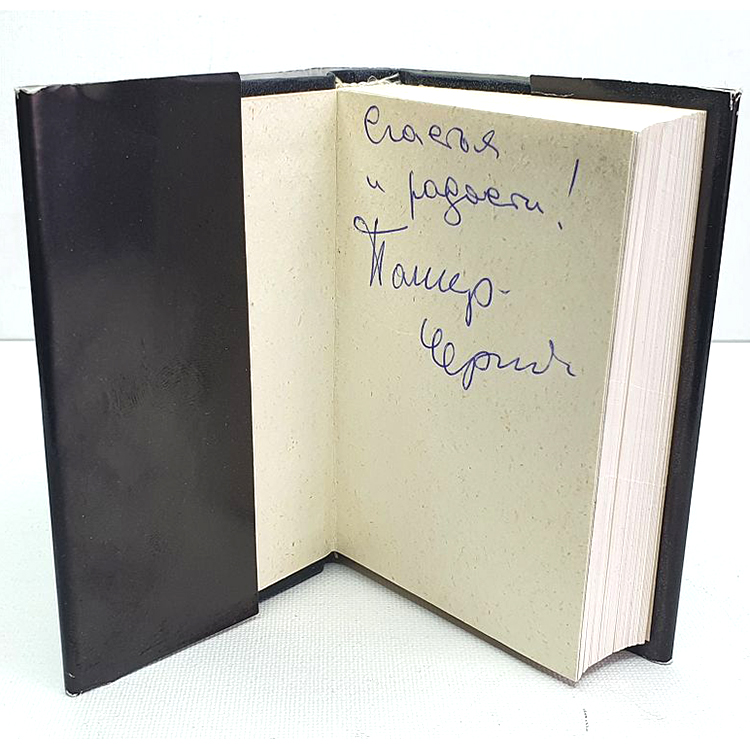 Счастья
и радости!
Пашер-
Черный